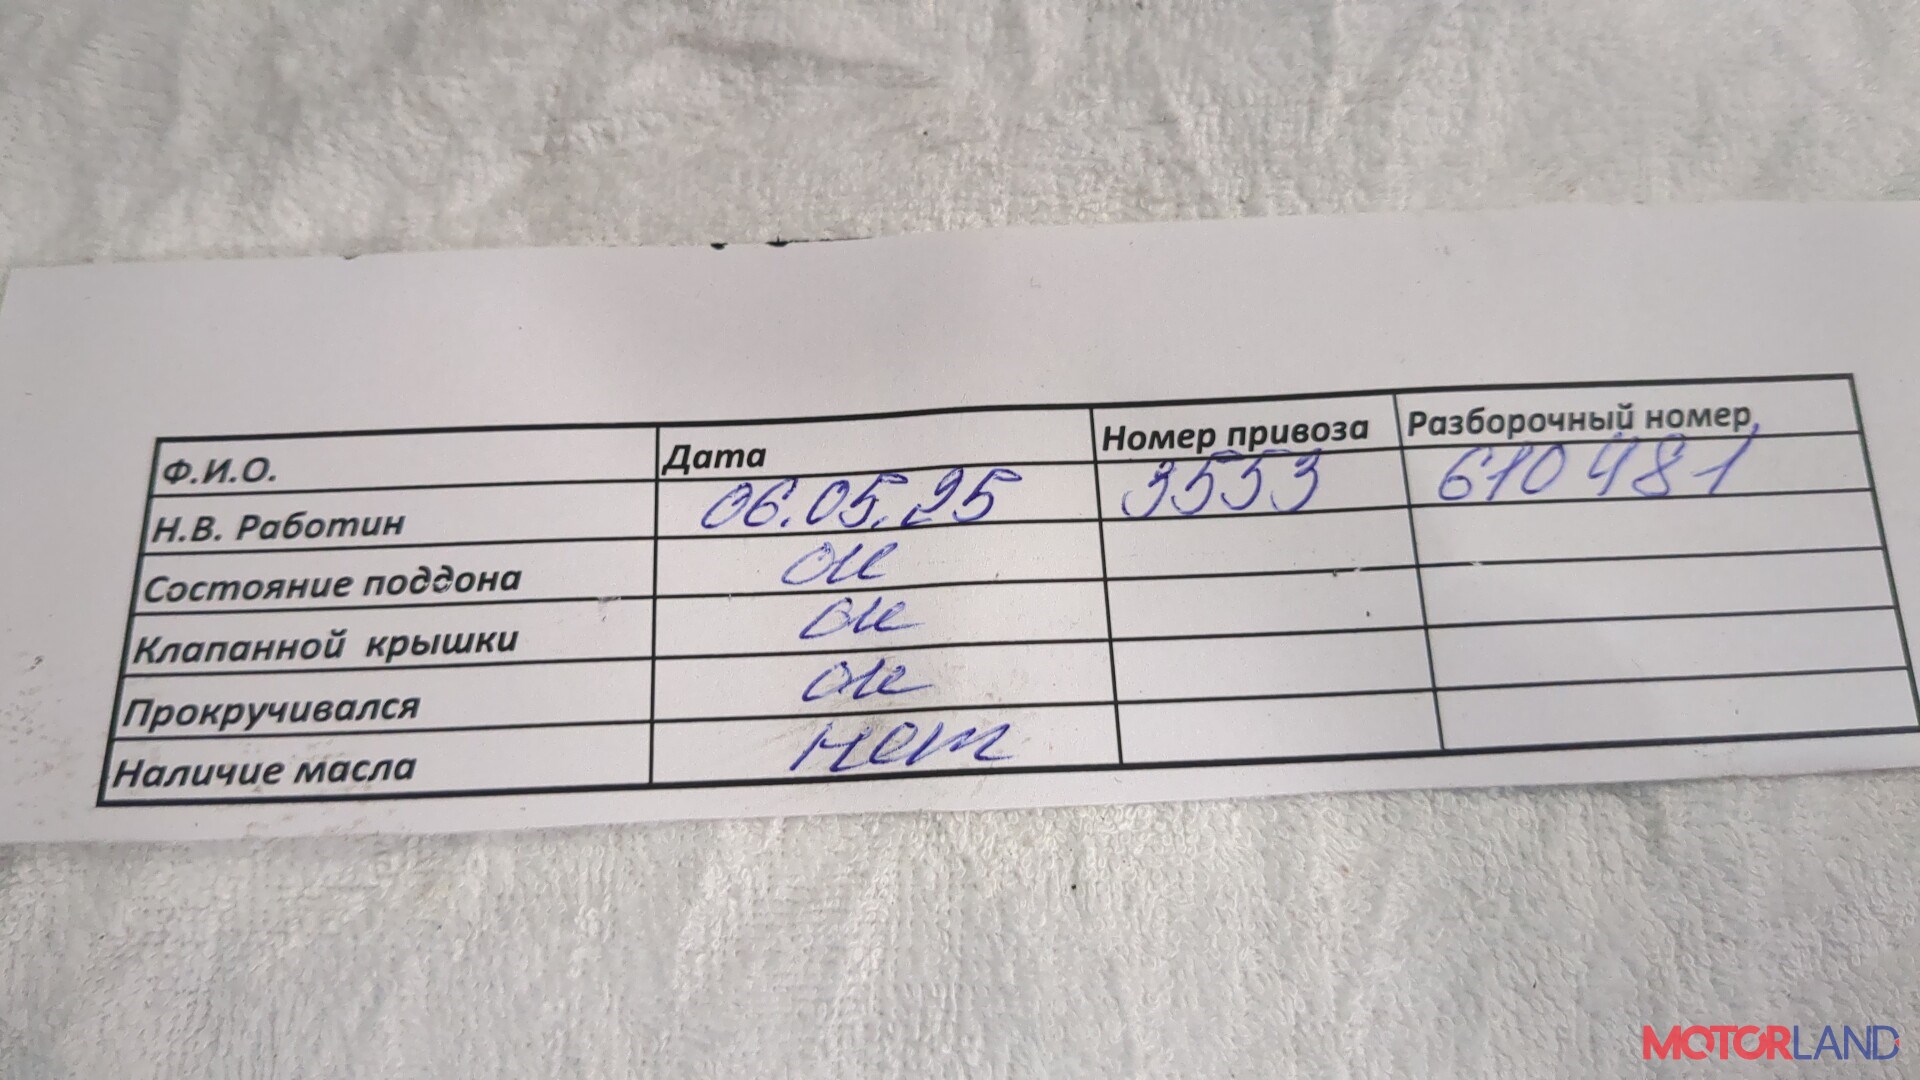 Ф.И.О. Дата Номер привоза Разборочный номер
Н.В. Работин 06.05.25 3553 610481
Состояние поддона ок
Клапанной крышки ок
Прокручивался ок
Наличие масла нет
MOTORLAND